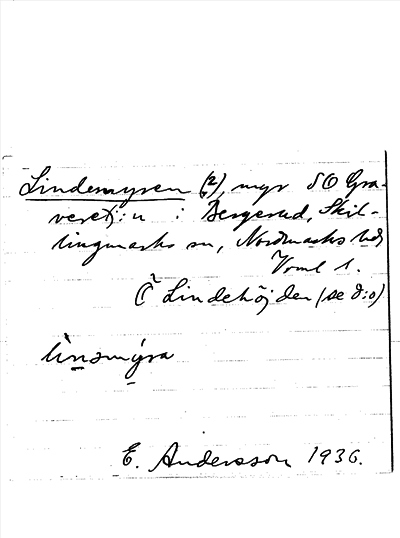 Lindemyren (2), myr SO Gra-
veretj:n i Bergerud, Skil-
lingmarks sn, Nordmarks hd
Vrml l.
Lindehöjden (se d:o)
linəmýra
E. Andersson 1936.